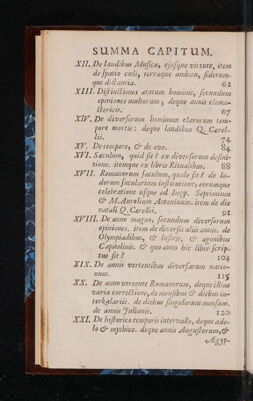 SUMMA CAPITUM.
XII. De laudibus Musicæ, ejusque virtute, item
de spatio cœli, terræque ambitu, siderum-
que distantia. 62
XIII. Distinctiones ætatum hominis, secundum
opiniones multorum; deque annis clima-
ctericis. 67
XIV. De diversorum hominum clarorum tem-
pore mortis: deque laudibus Q. Cerel-
lii. 74
XV. De tempore, & de ævo. 84
XVI. Sæculum, quid sit? ex diversorum defini-
tione. itemque ex libris Ritualibus. 88
XVII. Romanorum sæculum, quale sit? de lu-
dorum sæcularium institutione, eorumque
celebratione usque ad Impp. Septimium
& M. Aurelium Antoninum. item de die
natali Q. Cerellii. 91
XVIII. De anno magno, secundum diversorum
opiniones. item de diversis aliis annis. de
Olympiadibus, & lustris, & agonibus
Capitolinis, & quo anno hic liber scrip-
tus sit? 104
XIX. De annis vertentibus diversarum natio-
num. 115
XX. De anno vertente Romanorum, deque illius
varia correctione, de mensibus & diebus in-
terkalariis. de diebus singulorum mensium.
de annis Julianis. 120
XXI. De historico temporis intervallo, deque ade-
lo & mythico. deque annis Augustorum, &
Ægyp-